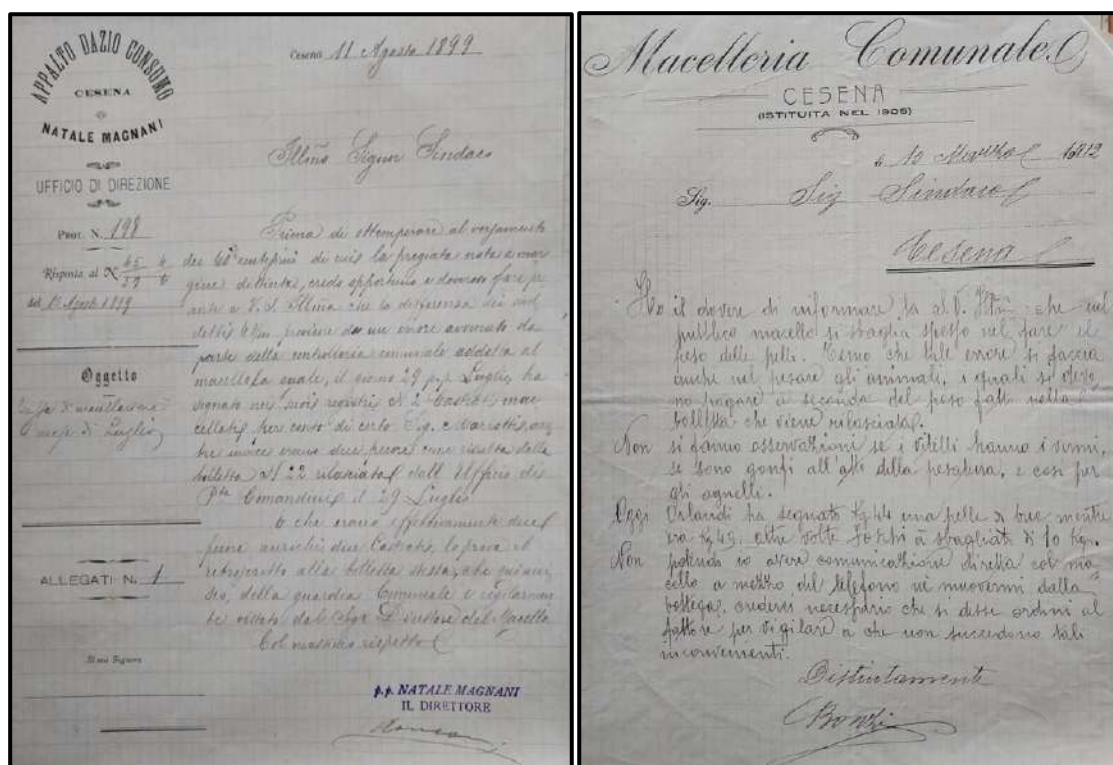 APPALTO DAZIO CONSUMO
CESENA
NATALE MAGNANI
UFFICIO DI DIREZIONE
Prot. N. 198
Risposta al N.
del Agosto 1899
Oggetto
di macellazione
mese di Luglio
ALLEGATI N. 1
Cesena 11 Agosto 1899
Illmo Signor Sindaco
Prima di ottemperare al versamento
dei 60 centesimi di cui la pregiata nota a mar
gine distinta, credo opportuno e doveroso fare pre
sente a V. S. Illma che la differenza dei sud
detti proviene da un errore avvenuto da
parte della controlleria comunale addetta al
macello la quale, il giorno 29 p.p. Luglio, ha
segnato nei suoi registri N 2 Castrati mac
cellati per conto di certo Sig. Mariotti, men
tre invece erano due pecore come risulta dalla
bolletta N 22 rilasciata dall'Ufficio di
Pta Comandini il 29 Luglio
E che erano effettivamente due
pecore anziché due Castrati, lo prova il
retroscritto alla bolletta stessa, che qui
della guardia Comunale e
vistato dal Sigr Direttore del Macello
Col massimo rispetto
p.p. NATALE MAGNANI
IL DIRETTORE
Macelleria Comunale
CESENA
(ISTITUITA NEL 1905)
li 13 Marzo 1912
Sig. Sig Sindaco
Cesena
Ho il dovere di informare la S.V. Illma che nel
pubblico macello si sbaglia spesso nel fare il
peso delle pelli. Temo che tale errore si faccia
anche nel pesare gli animali, i quali si devo
no pagare a seconda del peso fatto nella
bolletta che viene rilasciata.
Non si fanno osservazioni se i vitelli hanno i
se sono gonfi all'atto della pesatura, e così per
gli agnelli.
Oggi Orlandi ha segnato Kg 44 una pelle di bue mentre
era Kg 45, altre volte a sbagliato di 10 Kg.
Non potendo io avere comunicazione diretta col ma
cello a mezzo del telefono nè muovermi dalla
bottega, crederei necessario che si desse ordini al
fattore per vigilare a che non succedono tali
inconvenienti.
Distintamente
Bonzi